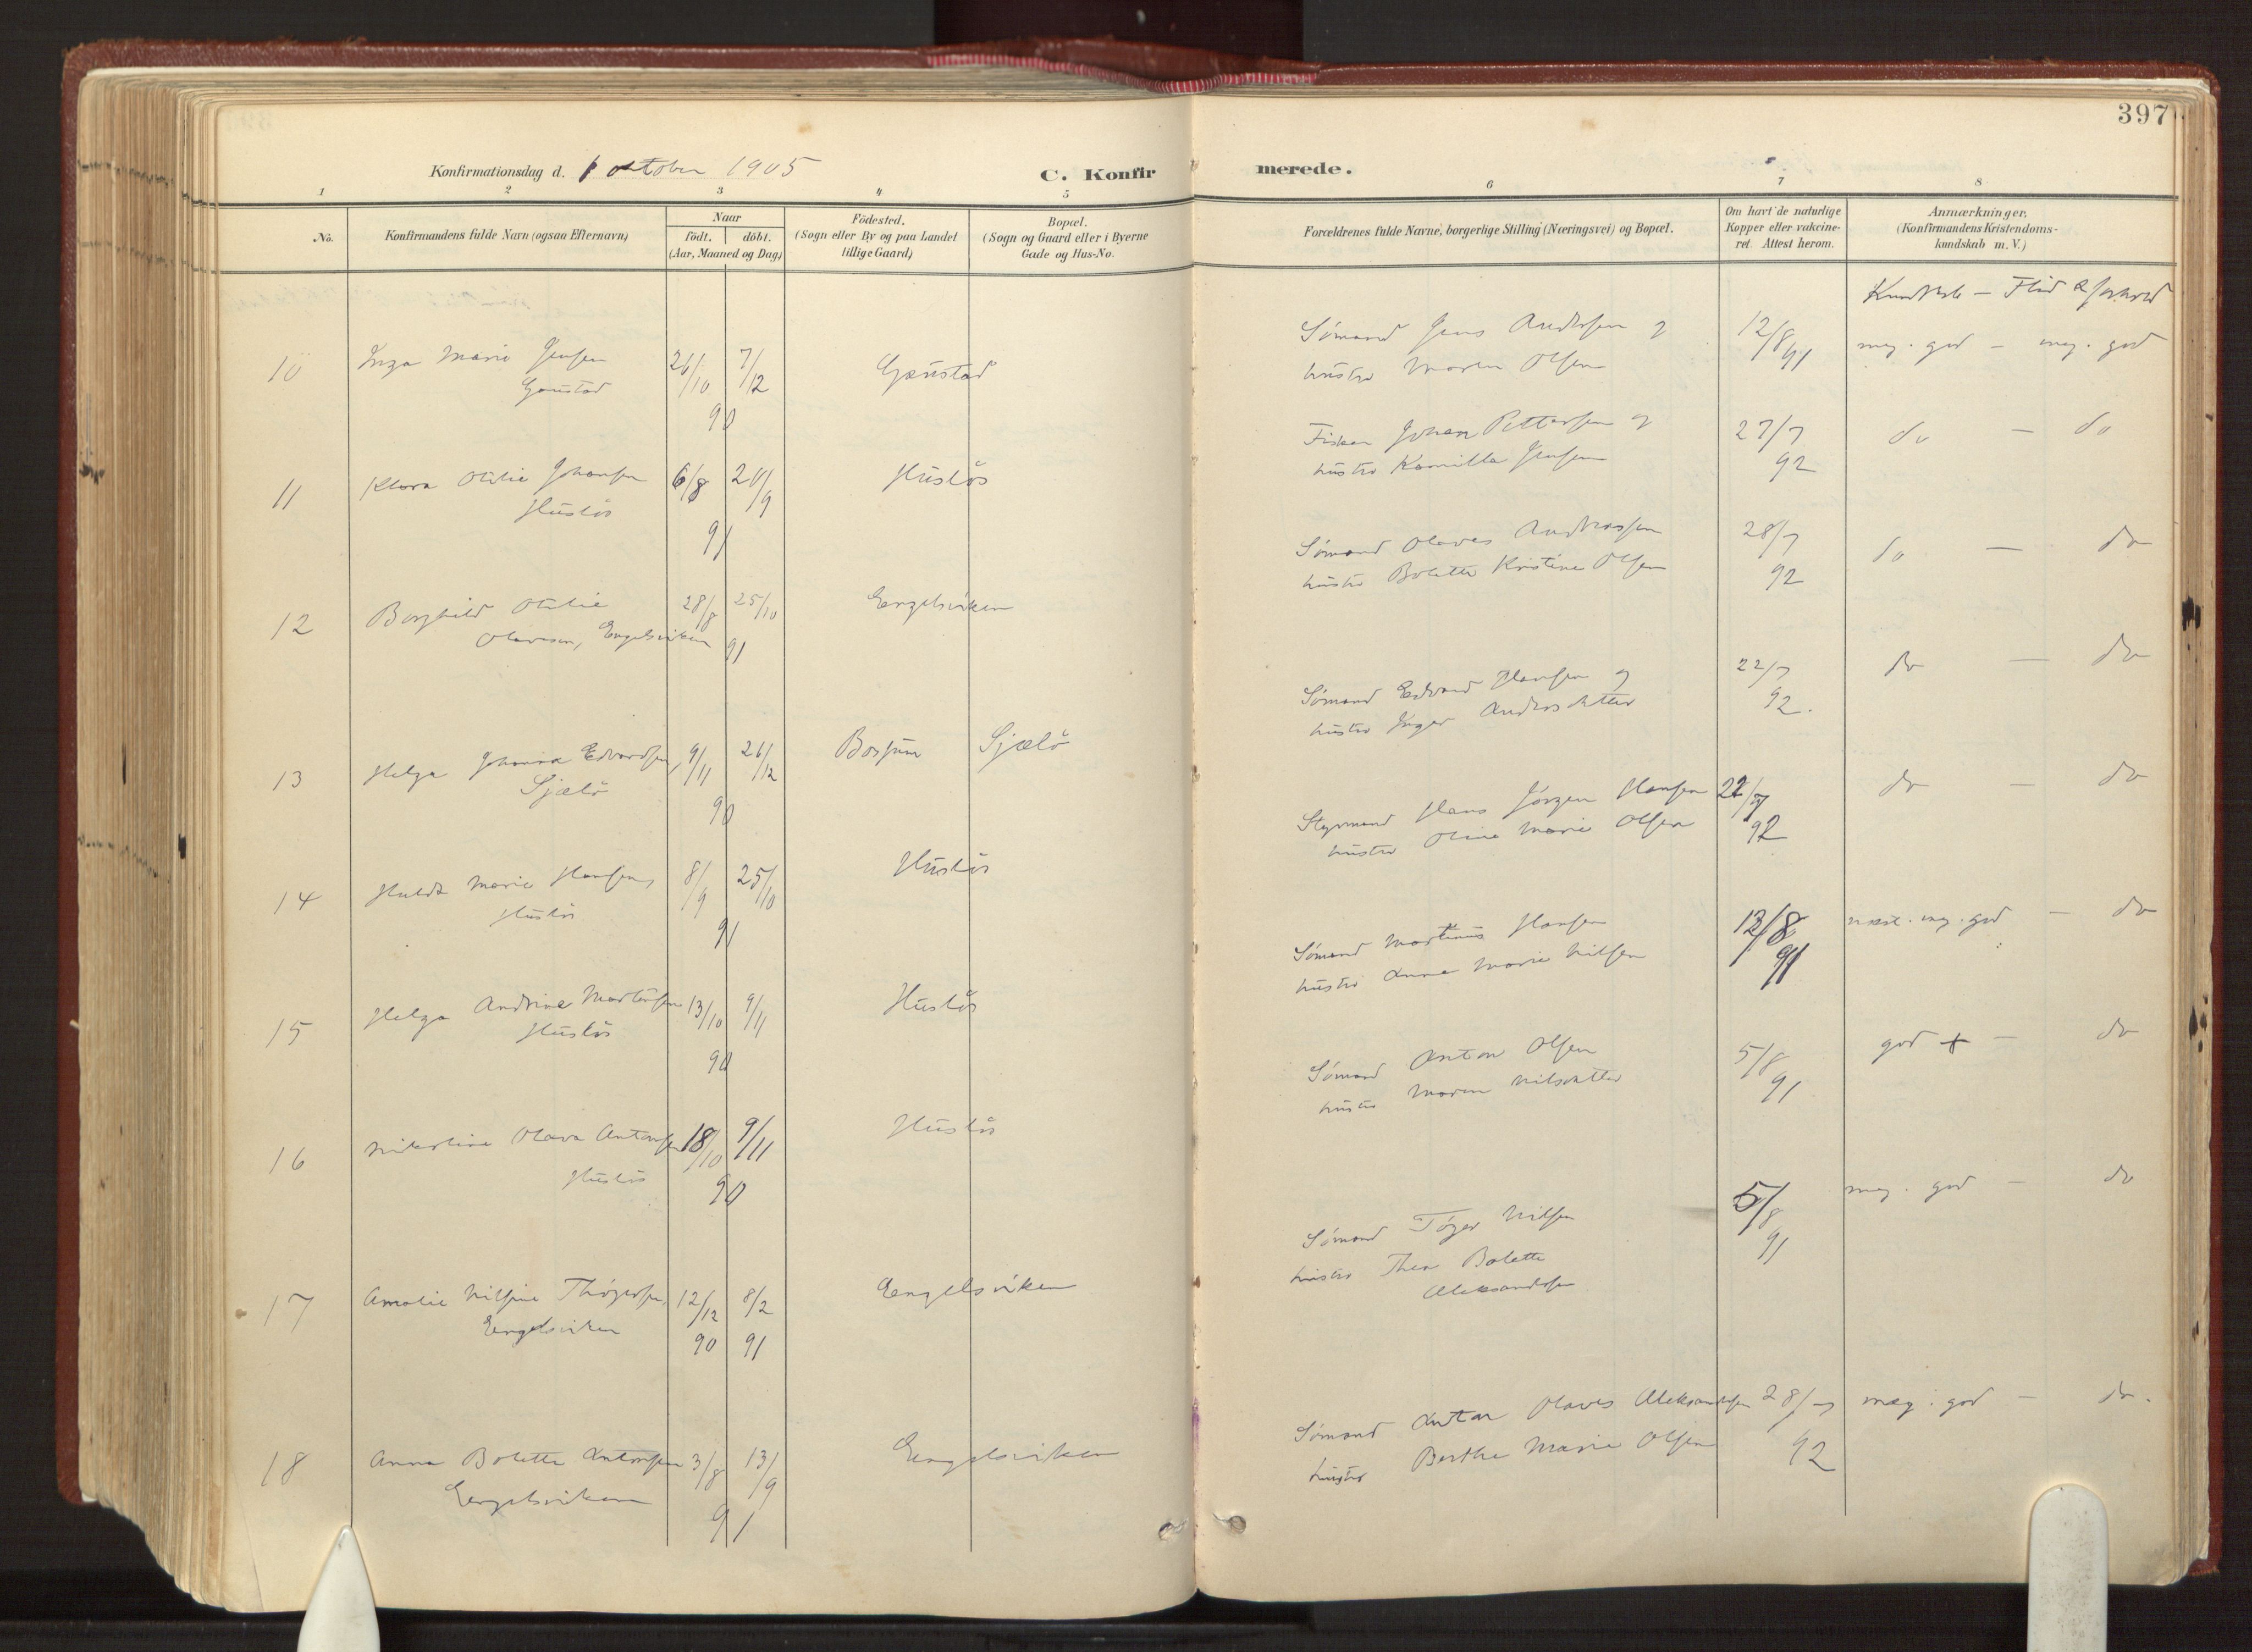 397
Konfirmationsdag d. 1 oktober 1905
C. Konfirmerede.
1 2 3 4 5 6 7 8
No.
Konfirmandens fulde Navn (ogsaa Efternavn)
Naar
født. døbt.
(Aar, Maaned og Dag)
Födested.
(Sogn eller By og paa Landet
tillige Gaard)
Bopæl.
(Sogn og Gaard eller i Byerne
Gade og Hus-No.
Forældrenes fulde Navne, borgerlige Stilling (Næringsvei) og Bopæl.
Om havt de naturlige
Kopper eller vakcine-
ret. Attest herom.
Anmærkninger.
(Konfirmandens Kristendoms-
kundskab m. V.)
Kundskab – Flid & forhold
10 Inga Marie Jensen 26/10 7/12 Gaustad Sømand Jens Andersen og 12/8 91 meg. god – meg. god
Gaustad 90 hustru Maren Olsen
11 Klara Otilie Johansen 6/8 20/9 Husløs Fisker Johan Pettersen og 27/7 92 do – do
Husløs 91 hustru Kamilla Jensen
12 Borghild Otilie 28/8 25/10 Engelsviken Sømand Olaves Andreassen 28/7 92 do – do
Olavesen, Engelsviken 91 hustru Bolette Kristine Olsen
13 Helga Johanna Edvardsen, 9/11 26/12 Borgund Sjælö Sømand Edvard Hansen og 22/7 92. do – do
Sjælö 90 hustru Inger Andersdatter
14 Hulda Marie Hansen, 8/9 25/10 Husløs Styrmand Hans Jörgen Hansen 22/7 92 do – do
Husløs 91 hustru Oline Marie Olsen
15 Helga Andrine Martinsen 13/10 9/11 Husløs Sømand Martinius Hansen 12/8 91 næst. meg. god – do
Husløs 90 hustru Anna Marie Nilsen
16 Nikoline Olava Antonsen 18/10 9/11 Husløs Sømand Anton Olsen 5/8 91 god + – do
Husløs 90 hustru Maren Nilsdatter
17 Amalie Nilsine Thøgersen, 12/12 90 8/2 91 Engelsviken Sømand Tøger Nilsen 5/8 91 meg. god – do
Engelsviken hustru Thea Bolette
Aleksandersen
18 Anna Bolette Antonsen 3/8 13/9 Engelsviken Sømand Anton Olaves Aleksandersen 28/7 92 meg. god – do.
Engelsviken 91 hustru Berthe Marie Olsen